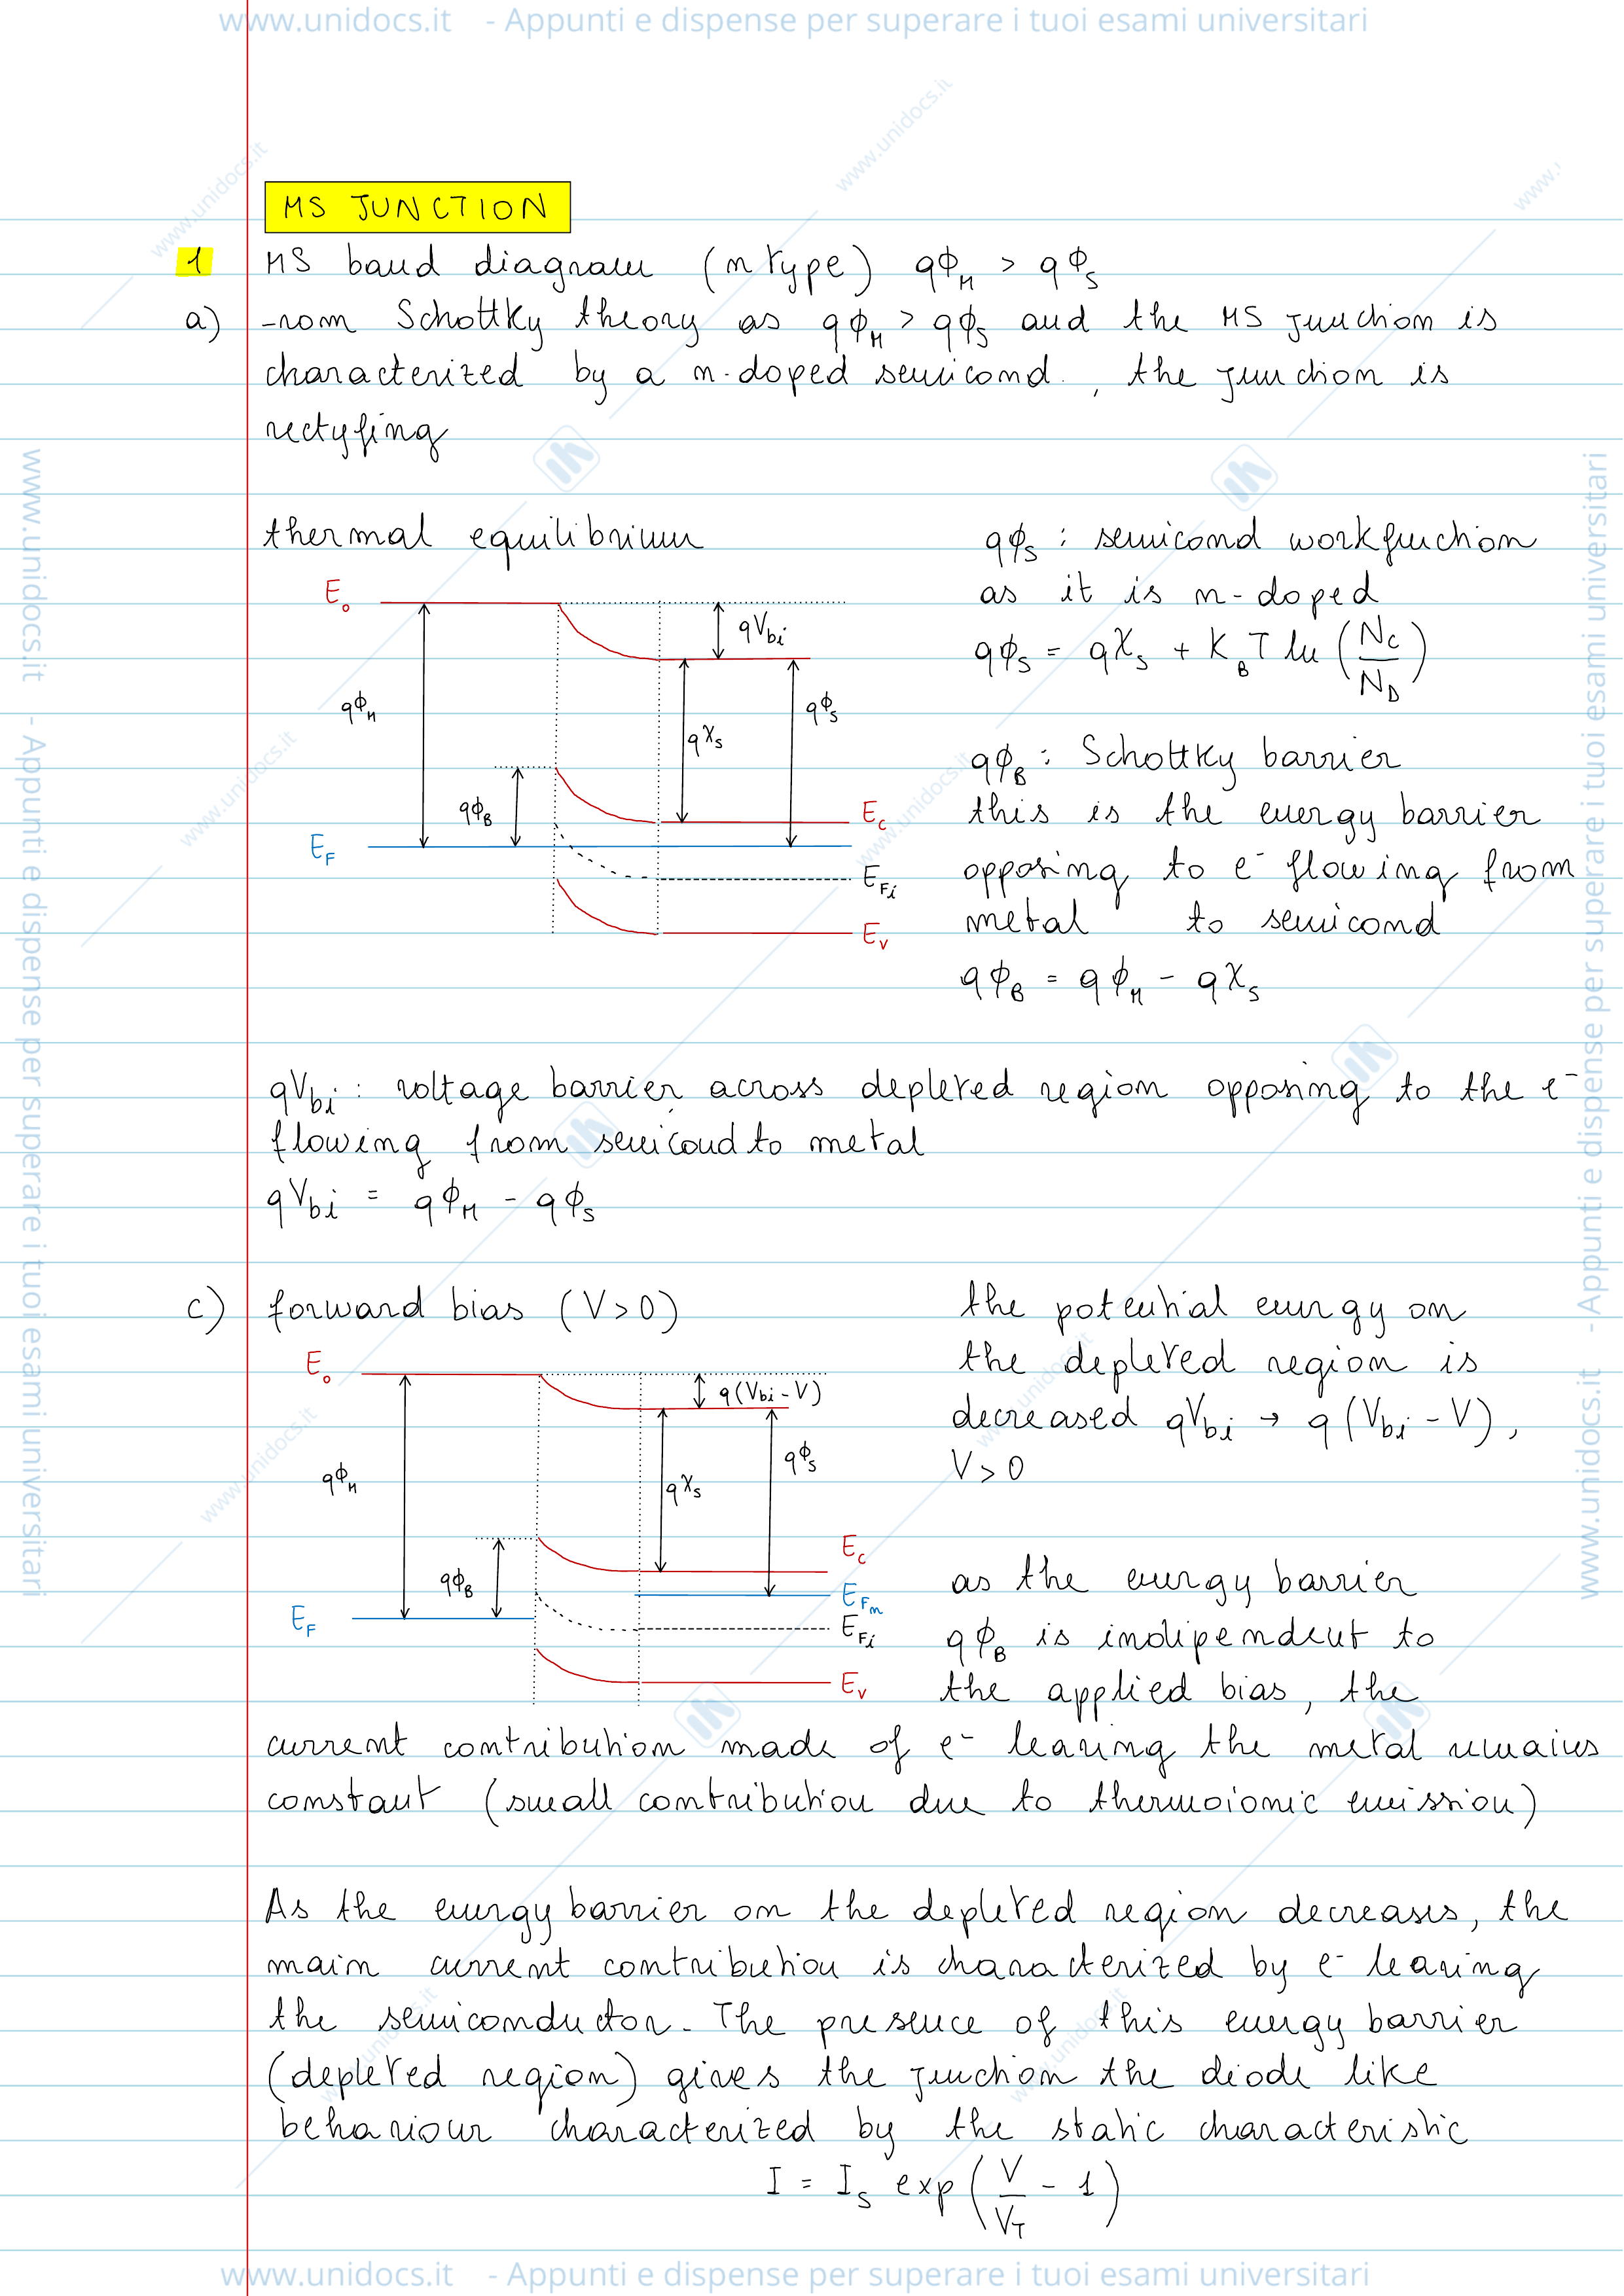 www.unidocs.it - Appunti e dispense per superare i tuoi esami universitari
MS JUNCTION
1 MS band diagram (n type) qΦ_M > qΦ_S
a) -rom Schottky theory as qΦ_M > qΦ_S and the MS junction is
characterized by a n-doped semicond., the junction is
rectyfing
thermal equilibrium
E_0
qV_bi
qΦ_M
qχ_S
qΦ_S
qΦ_B
E_c
E_F
E_Fi
E_v
qΦ_S : semicond workfunction
as it is n-doped
qΦ_S = qχ_S + K_B T ln (N_C / N_D)
qΦ_B : Schottky barrier
this is the energy barrier
opposing to e⁻ flowing from
metal to semicond
qΦ_B = qΦ_M - qχ_S
qV_bi : voltage barrier across depleted region opposing to the e⁻
flowing from semicond to metal
qV_bi = qΦ_M - qΦ_S
c) forward bias (V>0)
E_0
q(V_bi - V)
qΦ_M
qχ_S
qΦ_S
qΦ_B
E_c
E_Fn
E_F
E_Fi
E_v
the potential energy on
the depleted region is
decreased qV_bi → q(V_bi - V),
V>0
as the energy barrier
qΦ_B is indipendent to
the applied bias, the
current contribution made of e⁻ leaving the metal remains
constant (small contribution due to thermoionic emission)
As the energy barrier on the depleted region decreases, the
main current contribution is characterized by e⁻ leaving
the semiconductor. The presence of this energy barrier
(depleted region) gives the junction the diode like
behaviour characterized by the static characteristic
I = I_S exp(V/V_T - 1)
www.unidocs.it - Appunti e dispense per superare i tuoi esami universitari
www.unidocs.it - Appunti e dispense per superare i tuoi esami universitari
www.unidocs.it - Appunti e dispense per superare i tuoi esami universitari